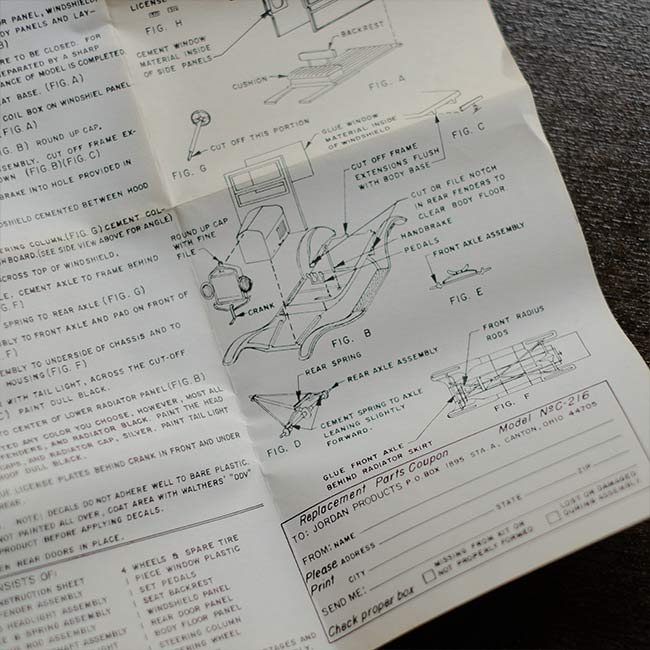 OR PANEL, WINDSHIELD
DY PANELS AND LAY-
B)
RE TO BE CLOSED. FOR
SEPARATED BY A SHARP
ANCE OF MODEL IS COMPLETED
AT BASE. (FIG. A)
COIL BOX ON WINDSHIEL PANEL
(FIG. A)
IG. B) ROUND UP CAP.
SSEMBLY. CUT OFF FRAME EX-
OWN (FIG. B)(FIG. C)
BRAKE INTO HOLE PROVIDED IN
DSHIELD CEMENTED BETWEEN HOOD
ERING COLUMN.(FIG. G) CEMENT COL-
HBOARD. (SEE SIDE VIEW ABOVE FOR ANGLE)
ACROSS TOP OF WINDSHIELD.
LE. CEMENT AXLE TO FRAME BEHIND
G. F)
SPRING TO REAR AXLE (FIG. G)
BLY TO FRONT AXLE AND PAD ON FRONT OF
. F)
EMBLY TO UNDERSIDE OF CHASSIS AND TO
HOUSING (FIG. F)
WITH TAIL LIGHT, ACROSS THE CUT-OFF
C) PAINT DULL BLACK.
TO CENTER OF LOWER RADIATOR PANEL (FIG. B)
TED ANY COLOR YOU CHOOSE, HOWEVER, MOST ALL
FENDERS, AND RADIATOR BLACK. PAINT THE HEAD
CAPS, AND RADIATOR CAP, SILVER. PAINT TAIL LIGHT
ROOF DULL BLACK.
UE LICENSE PLATES BEHIND CRANK IN FRONT AND UNDER
REAR.
NOTE: DECALS DO NOT ADHERE WELL TO BARE PLASTIC.
NOT PAINTED ALL OVER, COAT AREA WITH WALTHERS' "DDV"
PRODUCT BEFORE APPLYING DECALS.
EN NEAR DOORS IN PLACE.
NSISTS OF:
NSTRUCTION SHEET
FENDER ASSEMBLY
HEADLIGHT ASSEMBLY
LE & SPRING ASSEMBLY
ROD ASSEMBLY
SHAFT ASSEMBLY
4 WHEELS & SPARE TIRE
1 PIECE WINDOW PLASTIC
1 SET PEDALS
1 SEAT BACKREST
1 WINDSHIELD PANEL
1 REAR DOOR PANEL
1 BODY FLOOR PANEL
1 STEERING COLUMN
1 STEERING WHEEL
STAGES AND
LICENSE
FIG. H
CEMENT WINDOW
MATERIAL INSIDE
OF SIDE PANELS
BACKREST
CUSHION
FIG. A
CUT OFF THIS PORTION
FIG. G
GLUE WINDOW
MATERIAL INSIDE
OF WINDSHIELD
FIG. C
CUT OFF FRAME
EXTENSIONS FLUSH
WITH BODY BASE
CUT OR FILE NOTCH
IN REAR FENDERS TO
CLEAR BODY FLOOR.
HANDBRAKE
PEDALS
ROUND UP CAP
WITH FINE
FILE
CRANK
FIG. B
FRONT AXLE ASSEMBLY
FIG. E
REAR SPRING
REAR AXLE ASSEMBLY
CEMENT SPRING TO AXLE
LEANING SLIGHTLY
FORWARD.
FIG. D
FRONT RADIUS
RODS
FIG. F
GLUE FRONT AXLE
BEHIND RADIATOR SKIRT
Replacement Parts Coupon Model No C-216
TO: JORDAN PRODUCTS P.O BOX 1895 STA. A, CANTON, OHIO 44705
FROM: NAME
Please ADDRESS
Print CITY STATE ZIP
SEND ME: MISSING FROM KIT OR
NOT PROPERLY FORMED
LOST OR DAMAGED
DURING ASSEMBLY
Check proper box